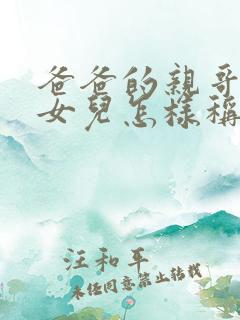 爸爸的親哥
女兒怎樣稱
汪和平
未經同意禁止轉載